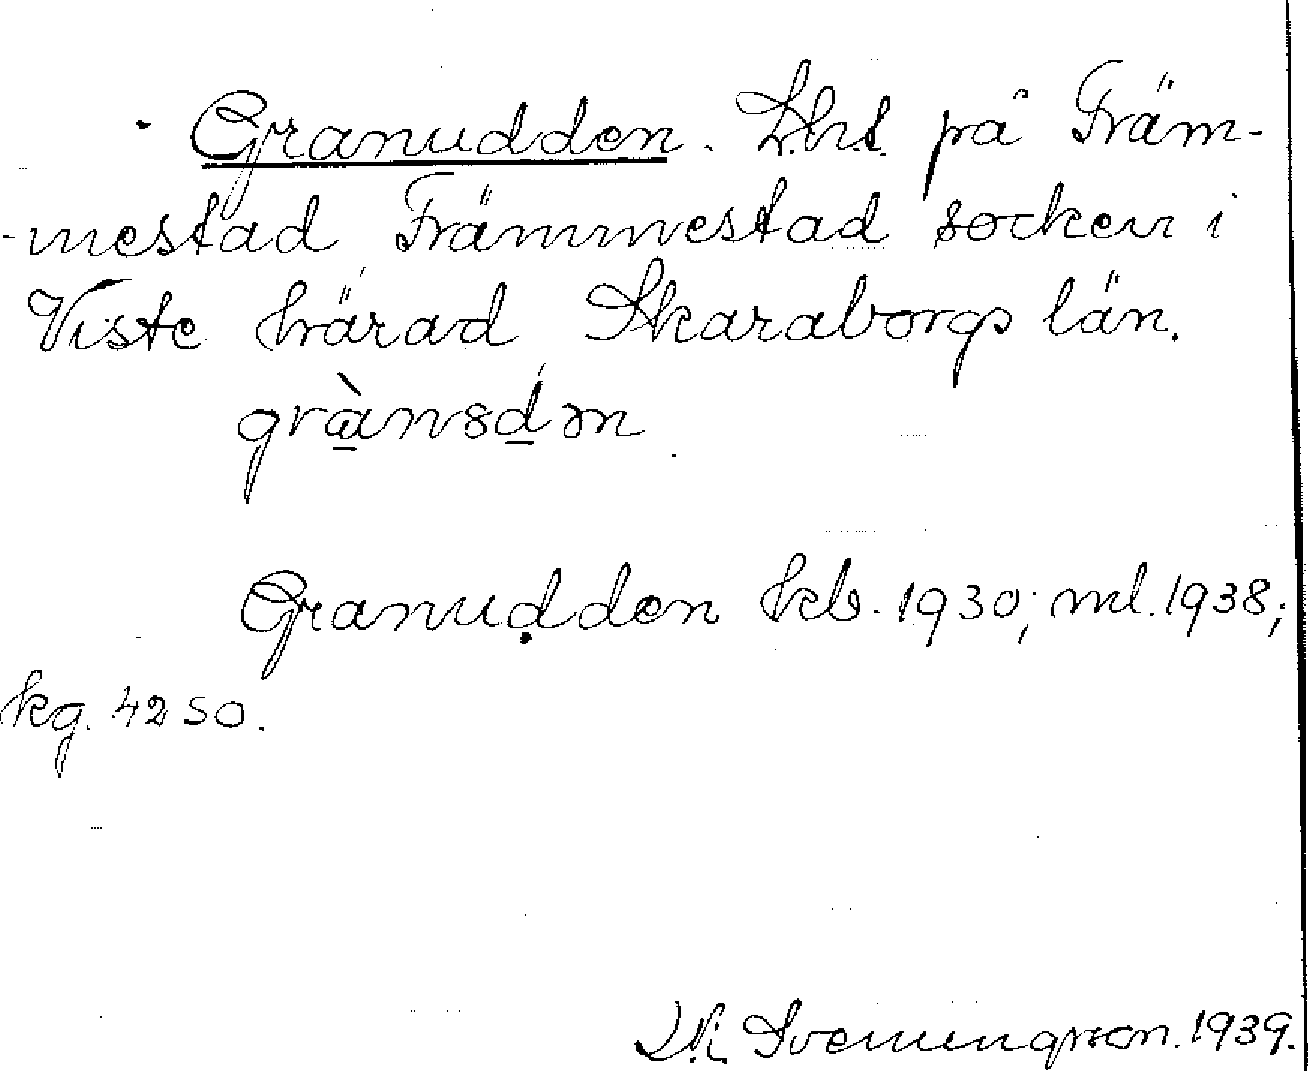 Granudden. Lht. på Främ-
-mestad Främmestad socken i
Viste härad Skaraborgs län.
grànsdən
Granudden kb. 1930; ml. 1938;
kg. 4250.
Svenungsson. 1939.